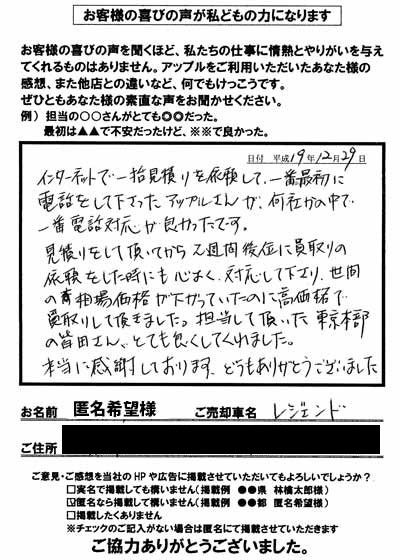 お客様の喜びの声が私どもの力になります
お客様の喜びの声を聞くほど、私たちの仕事に情熱とやりがいを与え
てくれるものはありません。アップルをご利用いただいたあなた様の
感想、また他店との違いなど、何でもけっこうです。
ぜひともあなた様の素直な声をお聞かせください。
例）担当の○○さんがとても◎◎だった。
最初は▲▲で不安だったけど、※※で良かった。
日付 平成19年12月29日
インターネットで一括見積りを依頼して、一番最初に
電話をして下さった アップルさんが、何社かの中で
一番電話対応が良かったです。
見積りをして頂いてから 2週間後位に買取りの
依頼をした時にも心よく、対応して下さり、世間
の車相場価格が下がっていたのに高価格で
買取りして頂きました。担当して頂いた 東京本部
の皆田さん、とても良くしてくれました。
本当に感謝しております、どうもありがとうございました
お名前 匿名希望様 ご売却車名 レジェンド
ご住所
ご意見・ご感想を当社のHPや広告に掲載させていただいてもよろしいでしょうか？
□実名で掲載しても構いません（掲載例 ●●県 林檎太郎様）
☑匿名なら掲載して構いません（掲載例 ●●都 匿名希望様）
□掲載したくありません
※チェックのご記入がない場合は匿名にて掲載させていただきます
ご協力ありがとうございました。